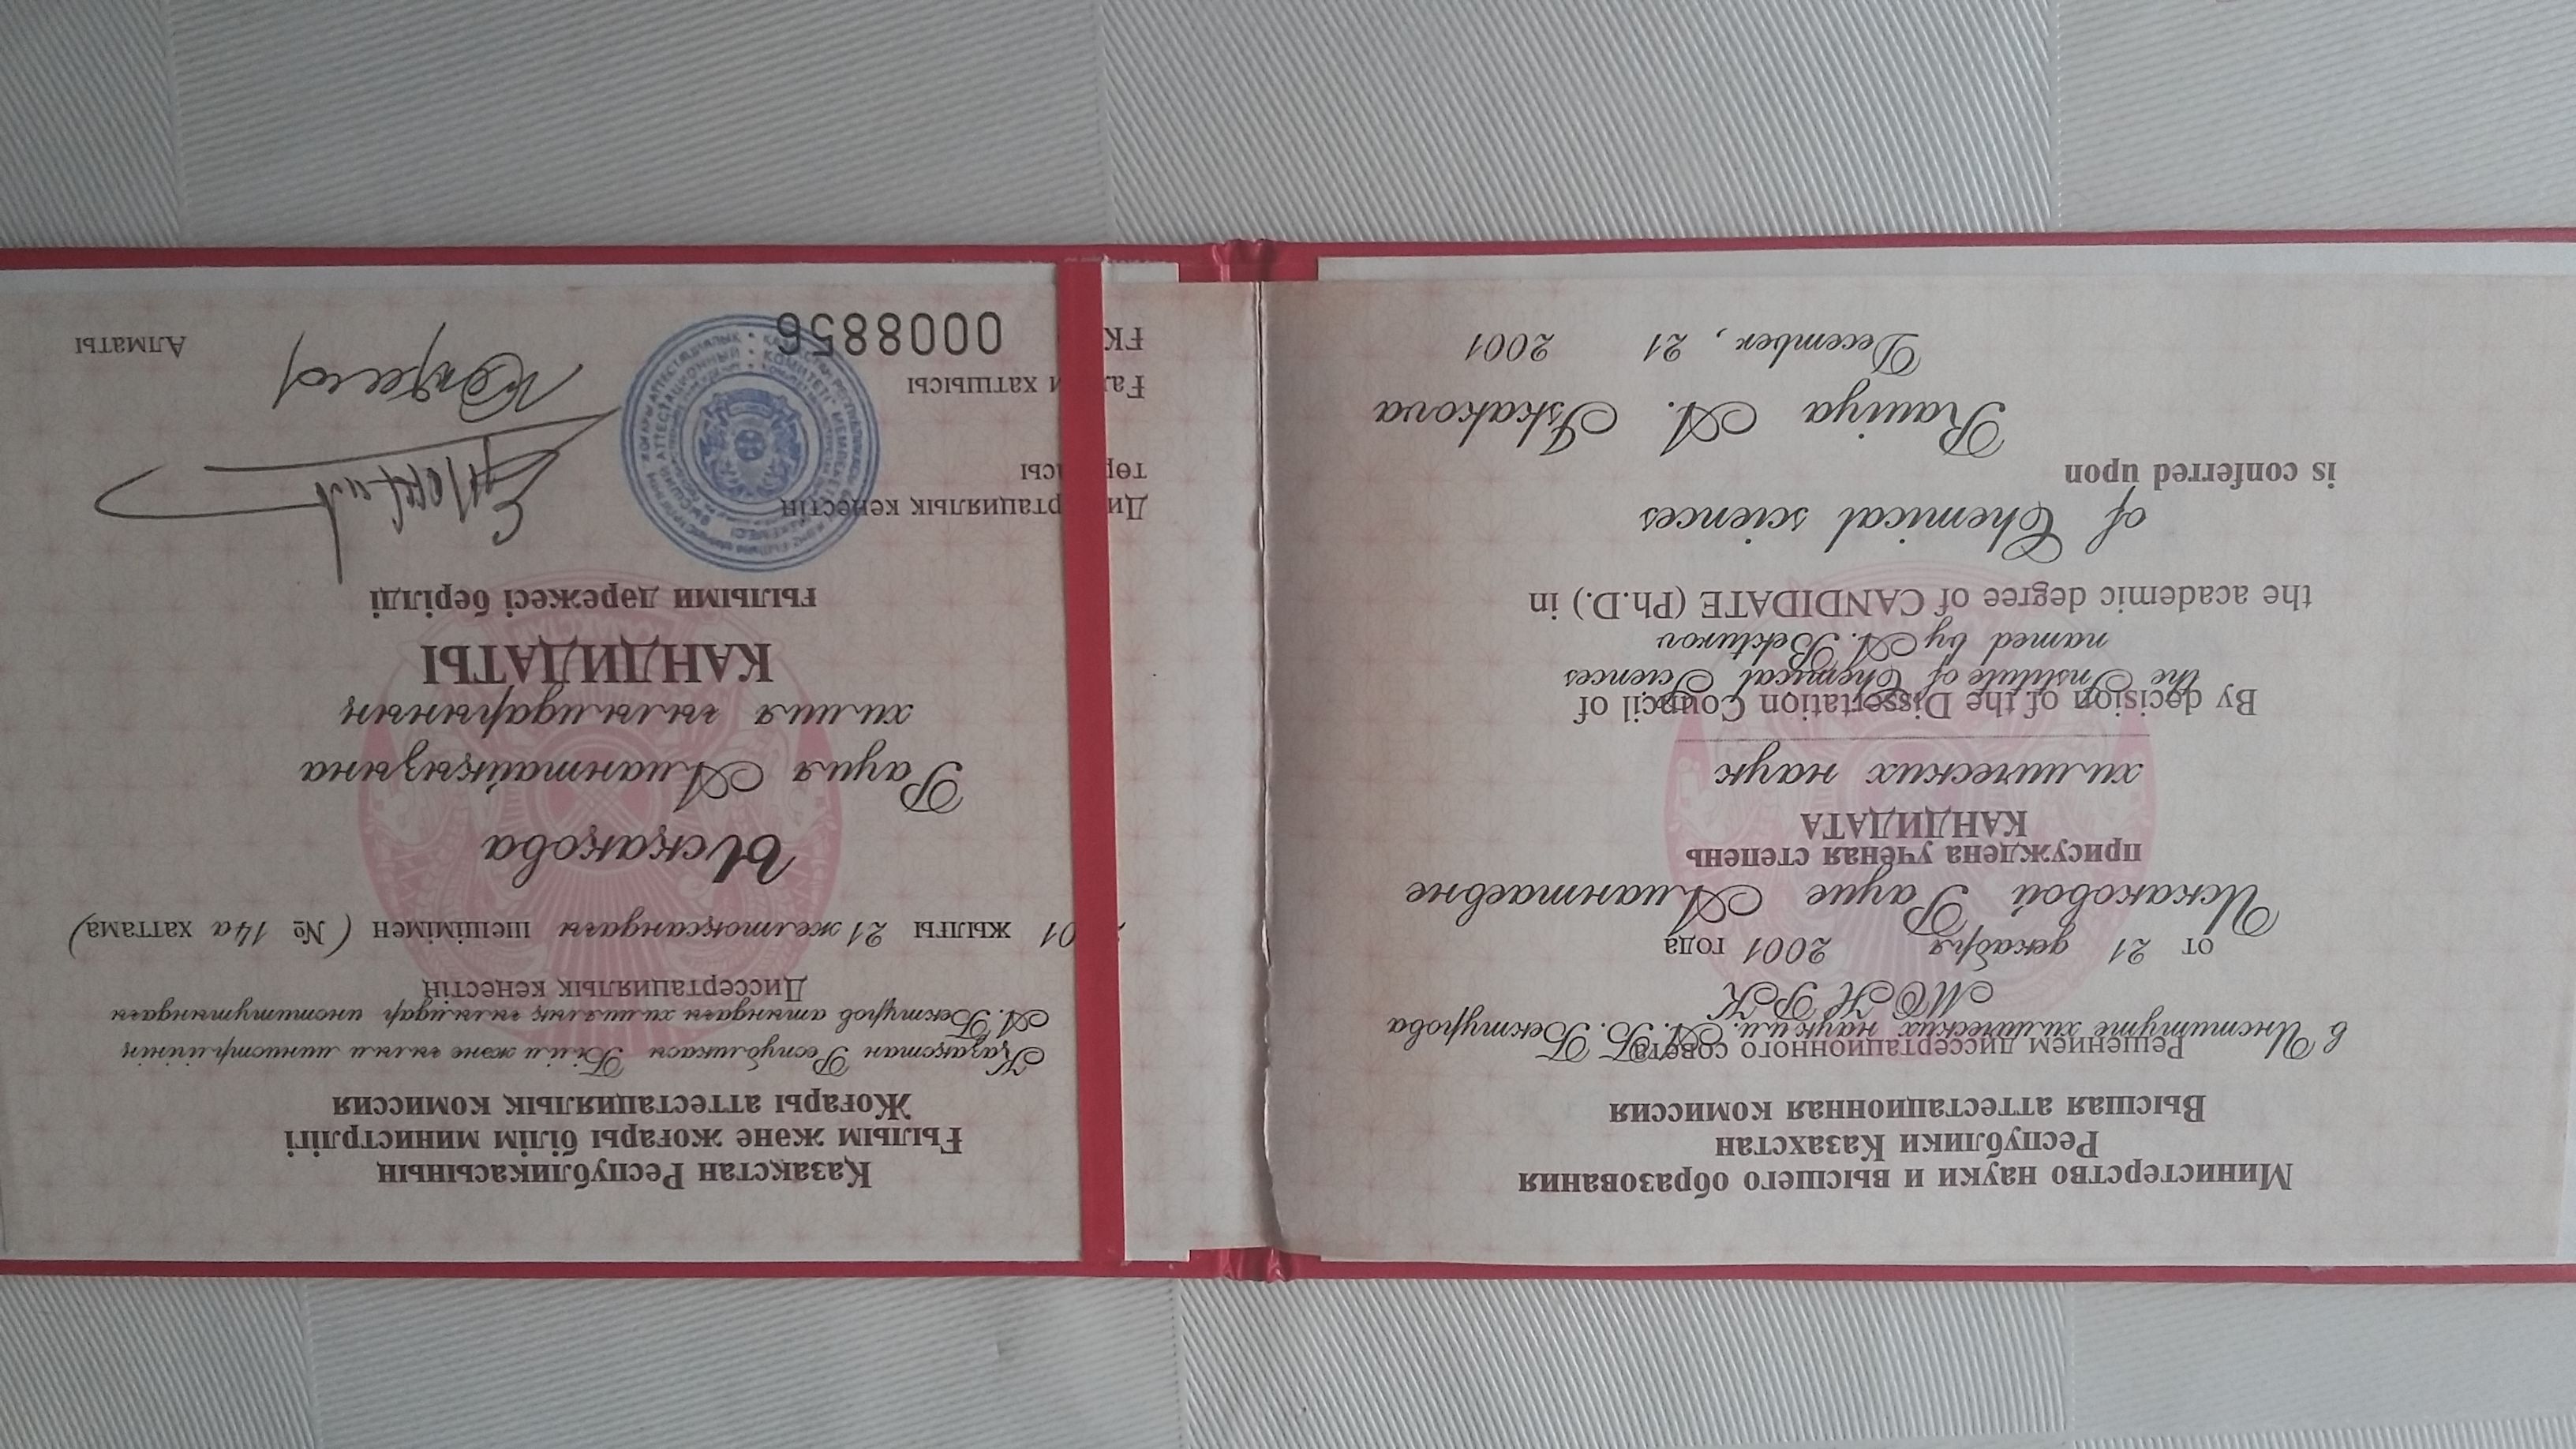 Министерство науки и высшего образования
Республики Казахстан
Высшая аттестационная комиссия
Решением диссертационного совета
в Институте химических наук им. А.Б. Бектурова
МОН РК
от 21 декабря 2001 года
Искаковой Рауие Амантаевне
присуждена учёная степень
КАНДИДАТА
химических наук
By decision of the Dissertation Council of
the Institute of Chemical Sciences
named by A. Bekturov
the academic degree of CANDIDATE (Ph.D.) in
of Chemical sciences
is conferred upon
Rauiya A. Iskakova
December, 21 2001
Қазақстан Республикасының
Ғылым және жоғары білім министрлігі
Жоғары аттестациялық комиссия
Қазақстан Республикасы Білім және ғылым министрлігінің
А. Бектұров атындағы химиялық ғылымдар институтындағы
Диссертациялық кеңестің
01 жылғы 21 желтоқсандағы шешімімен (№ 14а хаттама)
Ысқақова
Рауия Амантайқызына
химия ғылымдарының
КАНДИДАТЫ
ғылыми дәрежесі берілді
кеңестің
хатшысы
ҒК 0008856
Алматы